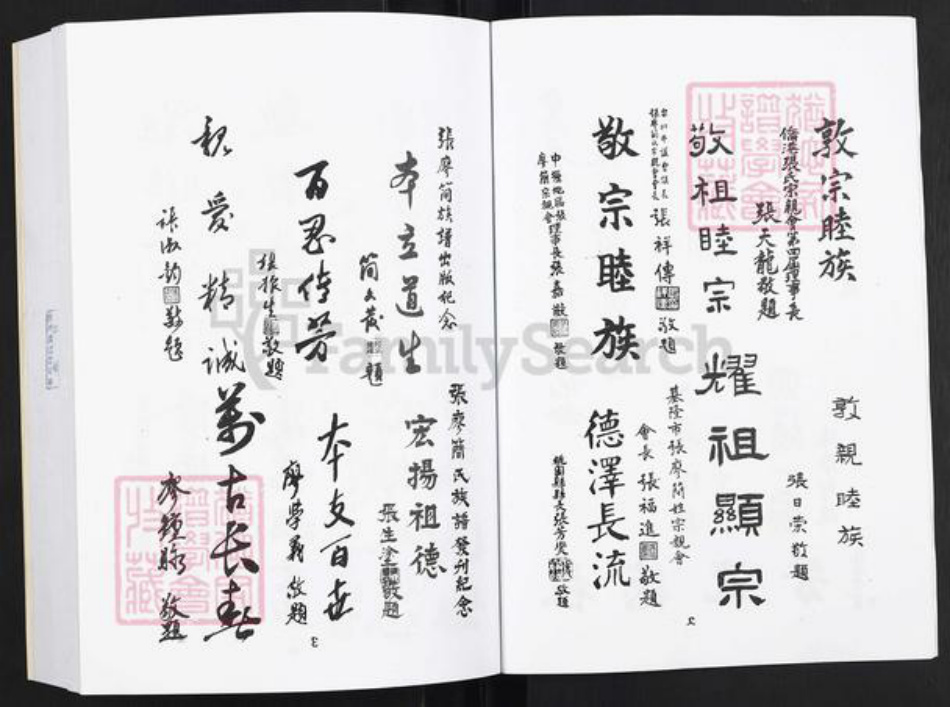 敦宗睦族
僑港張氏宗親會第四屆理事長
張天龍敬題
敬祖睦宗
張祥傳敬題
敬宗睦族
中壢地區張
廖簡宗親會理事長張嘉敬題
敦親睦族
張日崇敬題
耀祖顯宗
基隆市張廖簡姓宗親會
會長張福進敬題
德澤長流
桃園縣縣長張芳燮敬題
2
張廖簡族譜出版紀念
本立道生
簡文發題
百忍傳芳
張振生敬題
親愛精誠
張淑鈞敬題
張廖簡氏族譜發刊紀念
宏揚祖德
張生塗敬題
本支百世
廖學義敬題
萬古長春
敬題
3
FamilySearch